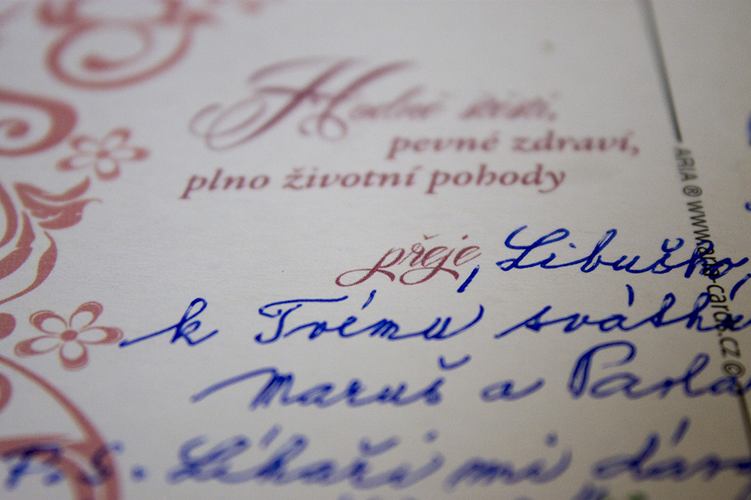 Hodně štěstí,
pevné zdraví,
plno životní pohody
přeje, Libuško,
k Tvému svátku
Maruš a Pavla
P.S. Lékaři mi
ARIA ® www.aria-cards.cz ©